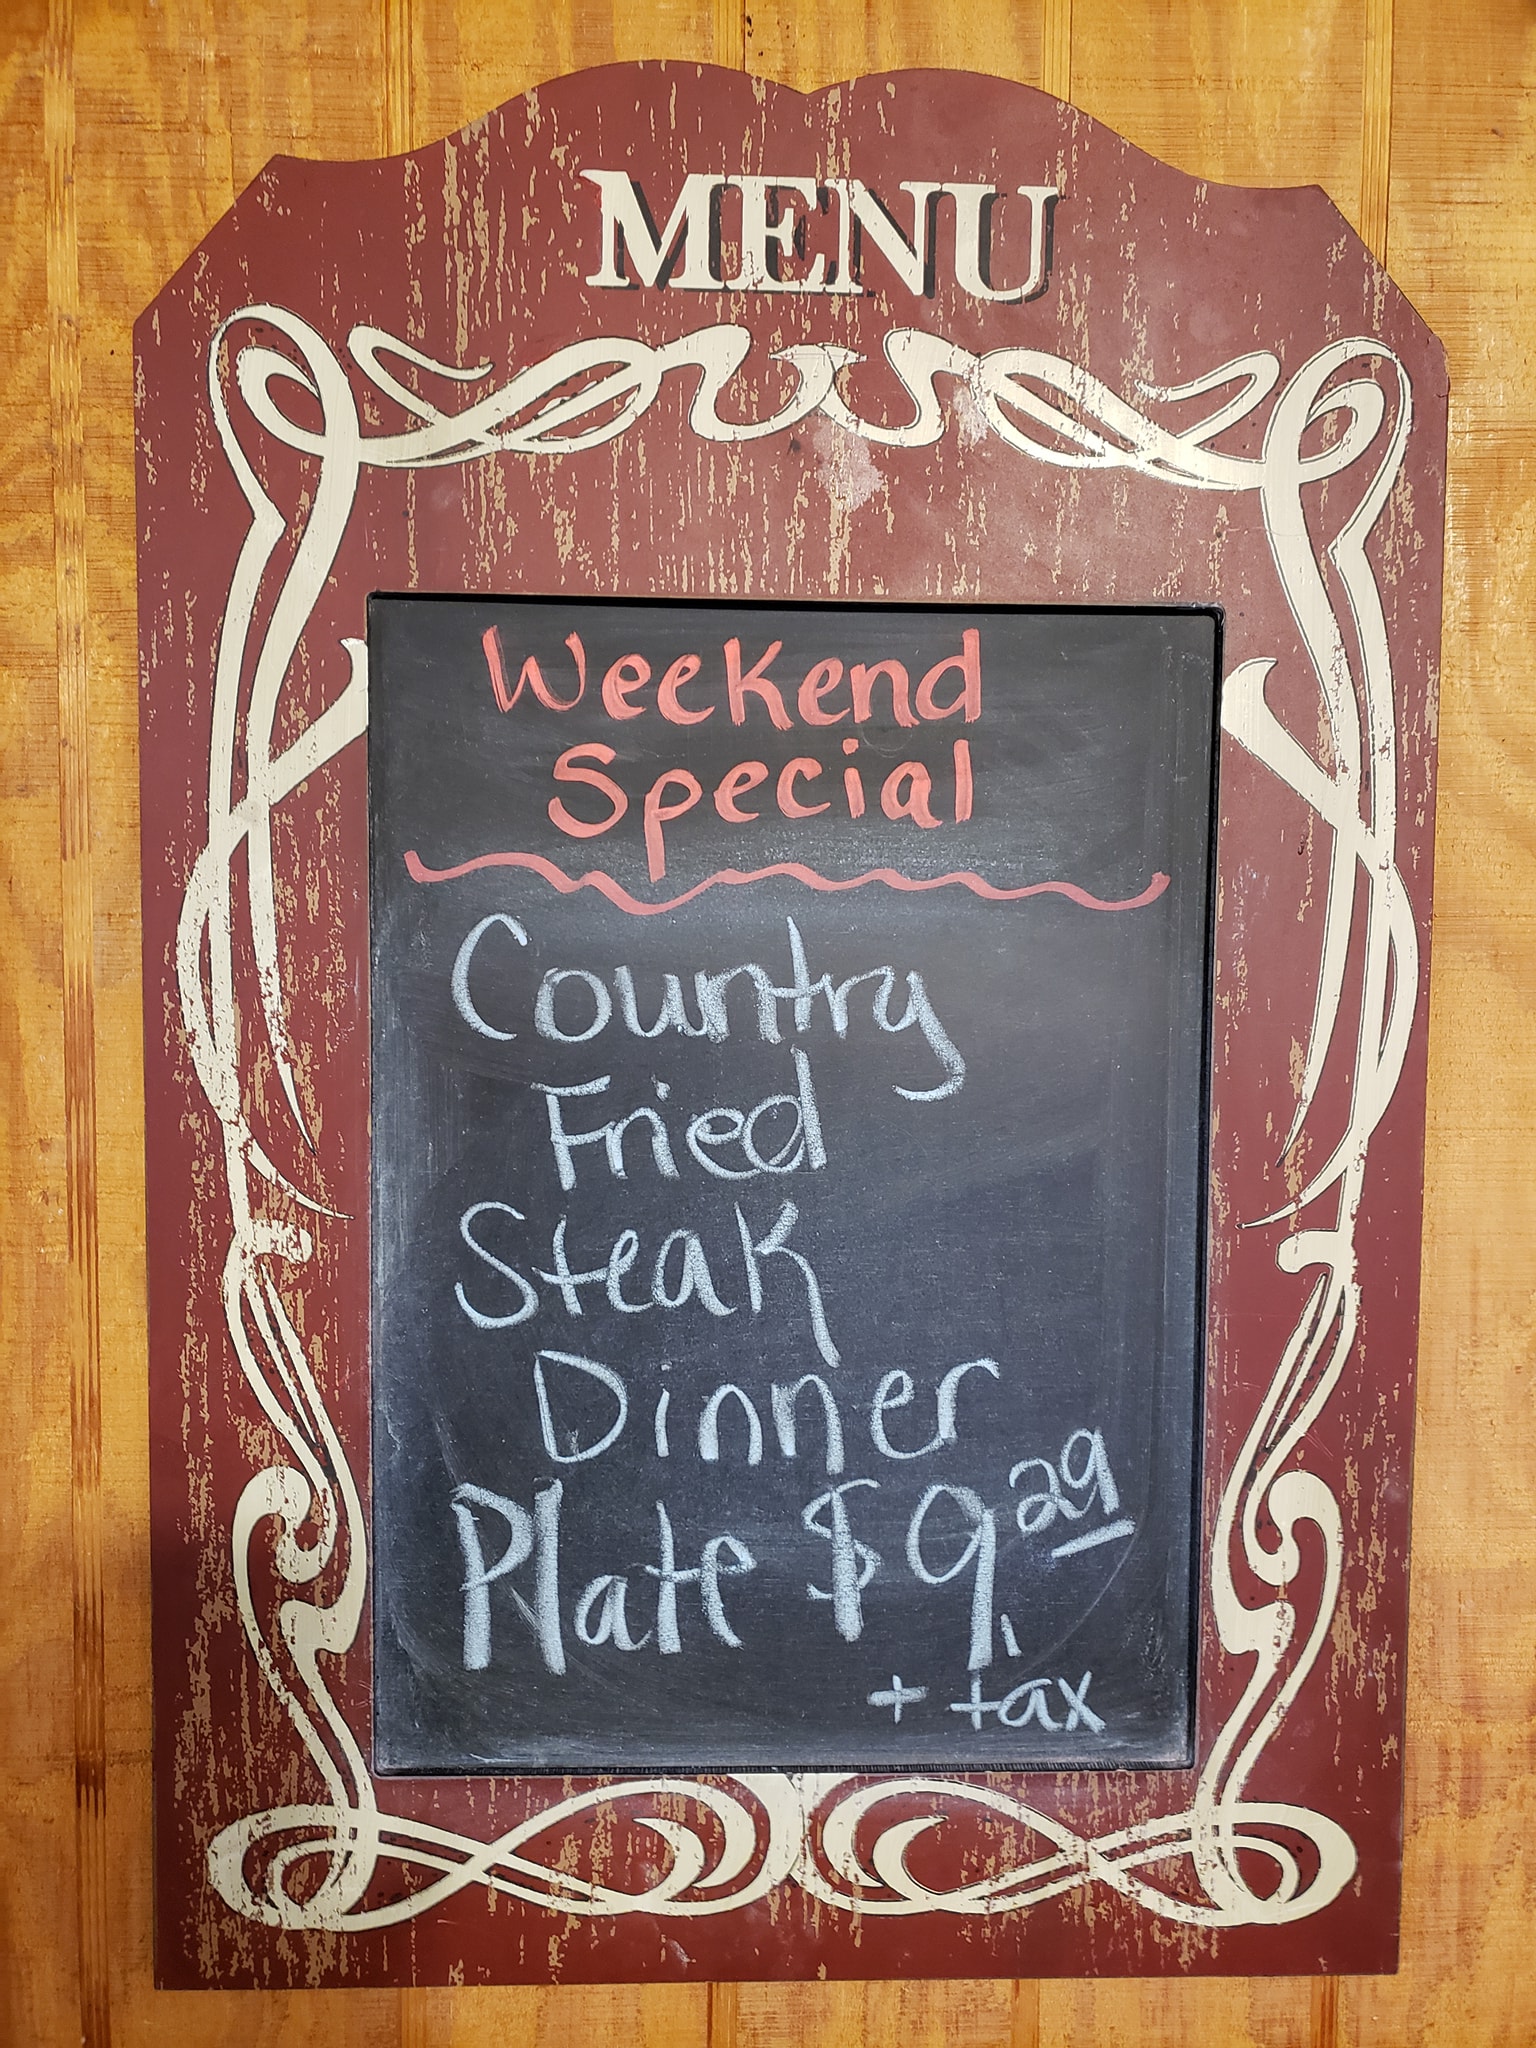 MENU
Weekend
Special
Country
Fried
Steak
Dinner
Plate $9.29
+ tax